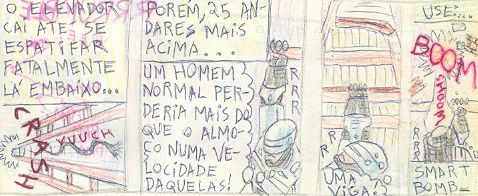 O ELEVADOR
CAI ATE. SE
ESPATIFAR
FATALMENTE
LÁ EMBAIXO...
CRASH
YUUCH
POREM, 25 AN-
DARES MAIS
ACIMA...
UM HOMEM
NORMAL PER-
DERIA MAIS DO
QUE O ALMO-
ÇO NUMA VE-
LOCIDADE
DAQUELAS!
R
R
R
R
R
R
UMA
VIGA
USE...
BOOM
SHOOM
R
R
SMART
BOMB-